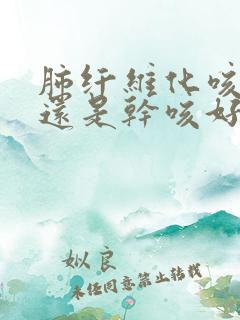 肺纤維化咳
還是幹咳好
姒良
未经同意禁止转载